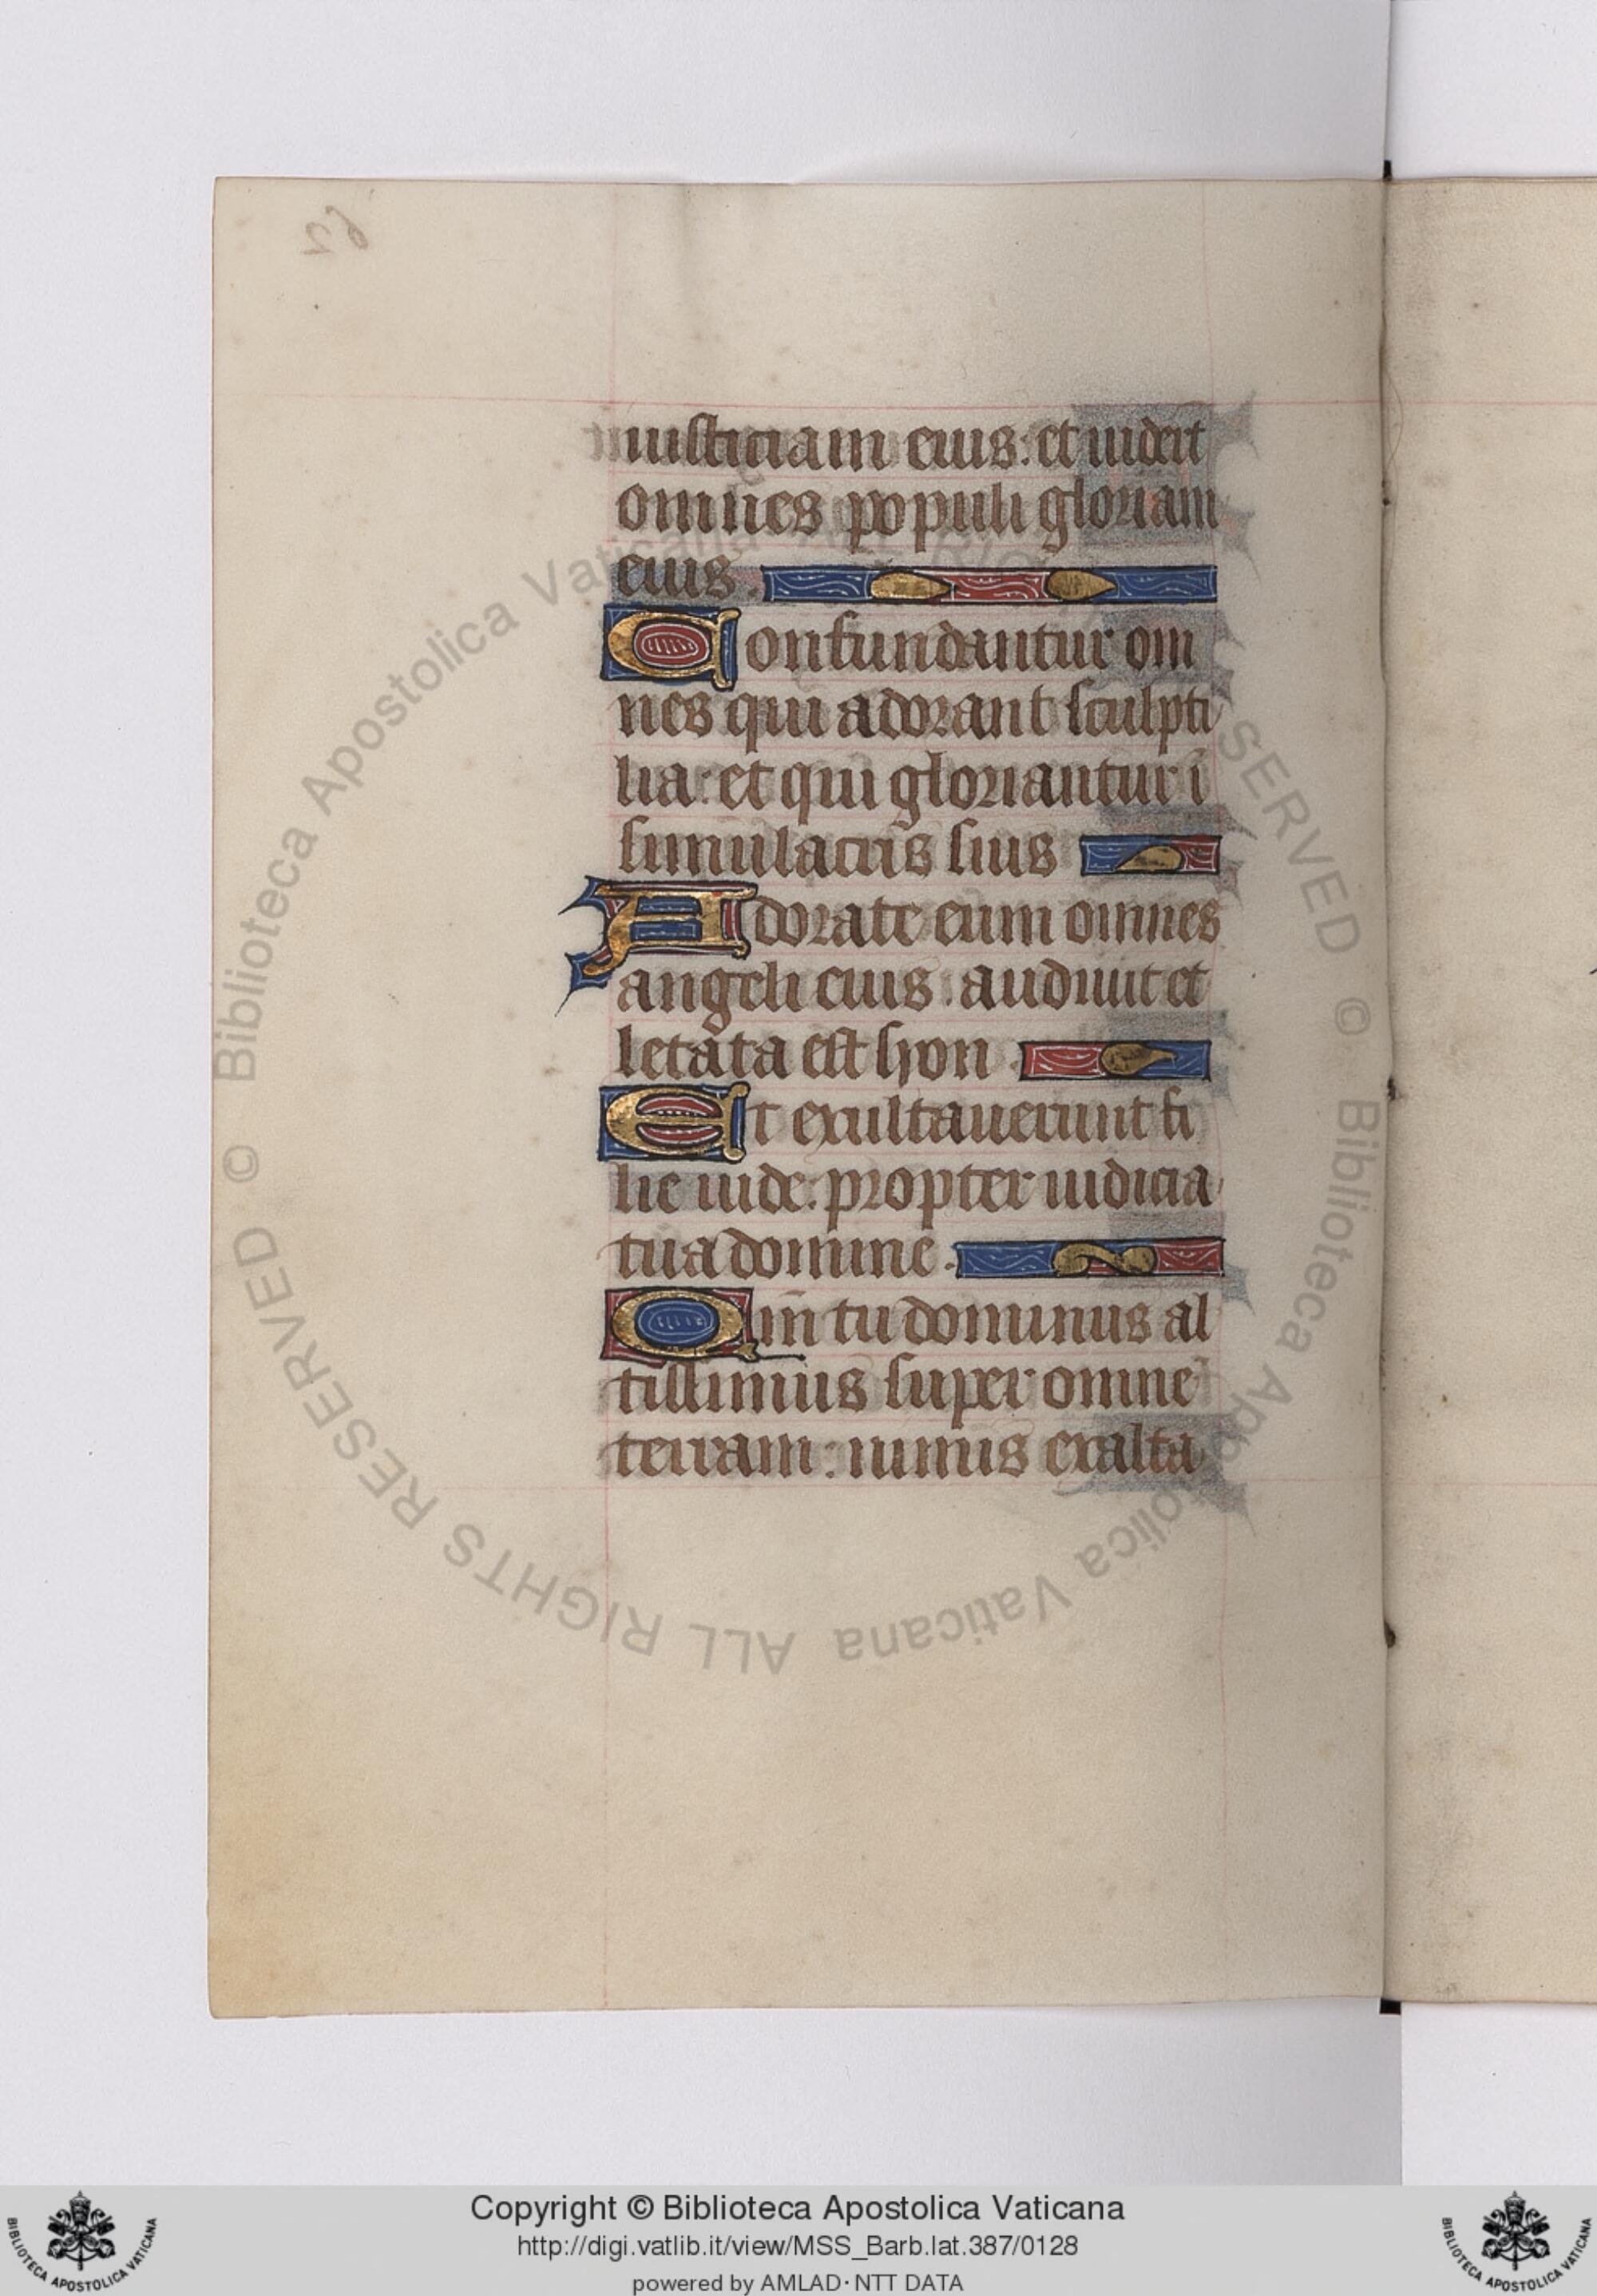 iusticiam eius: et uidert
omnes populi gloriam
eius.
Confundantur om
nes qui adorant sculpti
lia: et qui gloriantur ī
simulacris suis
Adorate eum omnes
angeli eius: audiuit et
letata est syon.
Et exultauerunt fi
lie iude: propter iudicia
tua domine.
Qm̄ tu dominus al
tissimus super omnē
terram: nimis exalta
62
© Biblioteca Apostolica Vaticana ALL RIGHTS RESERVED © Biblioteca Apostolica Vaticana ALL RIGHTS RESERVED
Copyright © Biblioteca Apostolica Vaticana
http://digi.vatlib.it/view/MSS_Barb.lat.387/0128
powered by AMLAD·NTT DATA
BIBLIOTECA APOSTOLICA VATICANA
BIBLIOTECA APOSTOLICA VATICANA